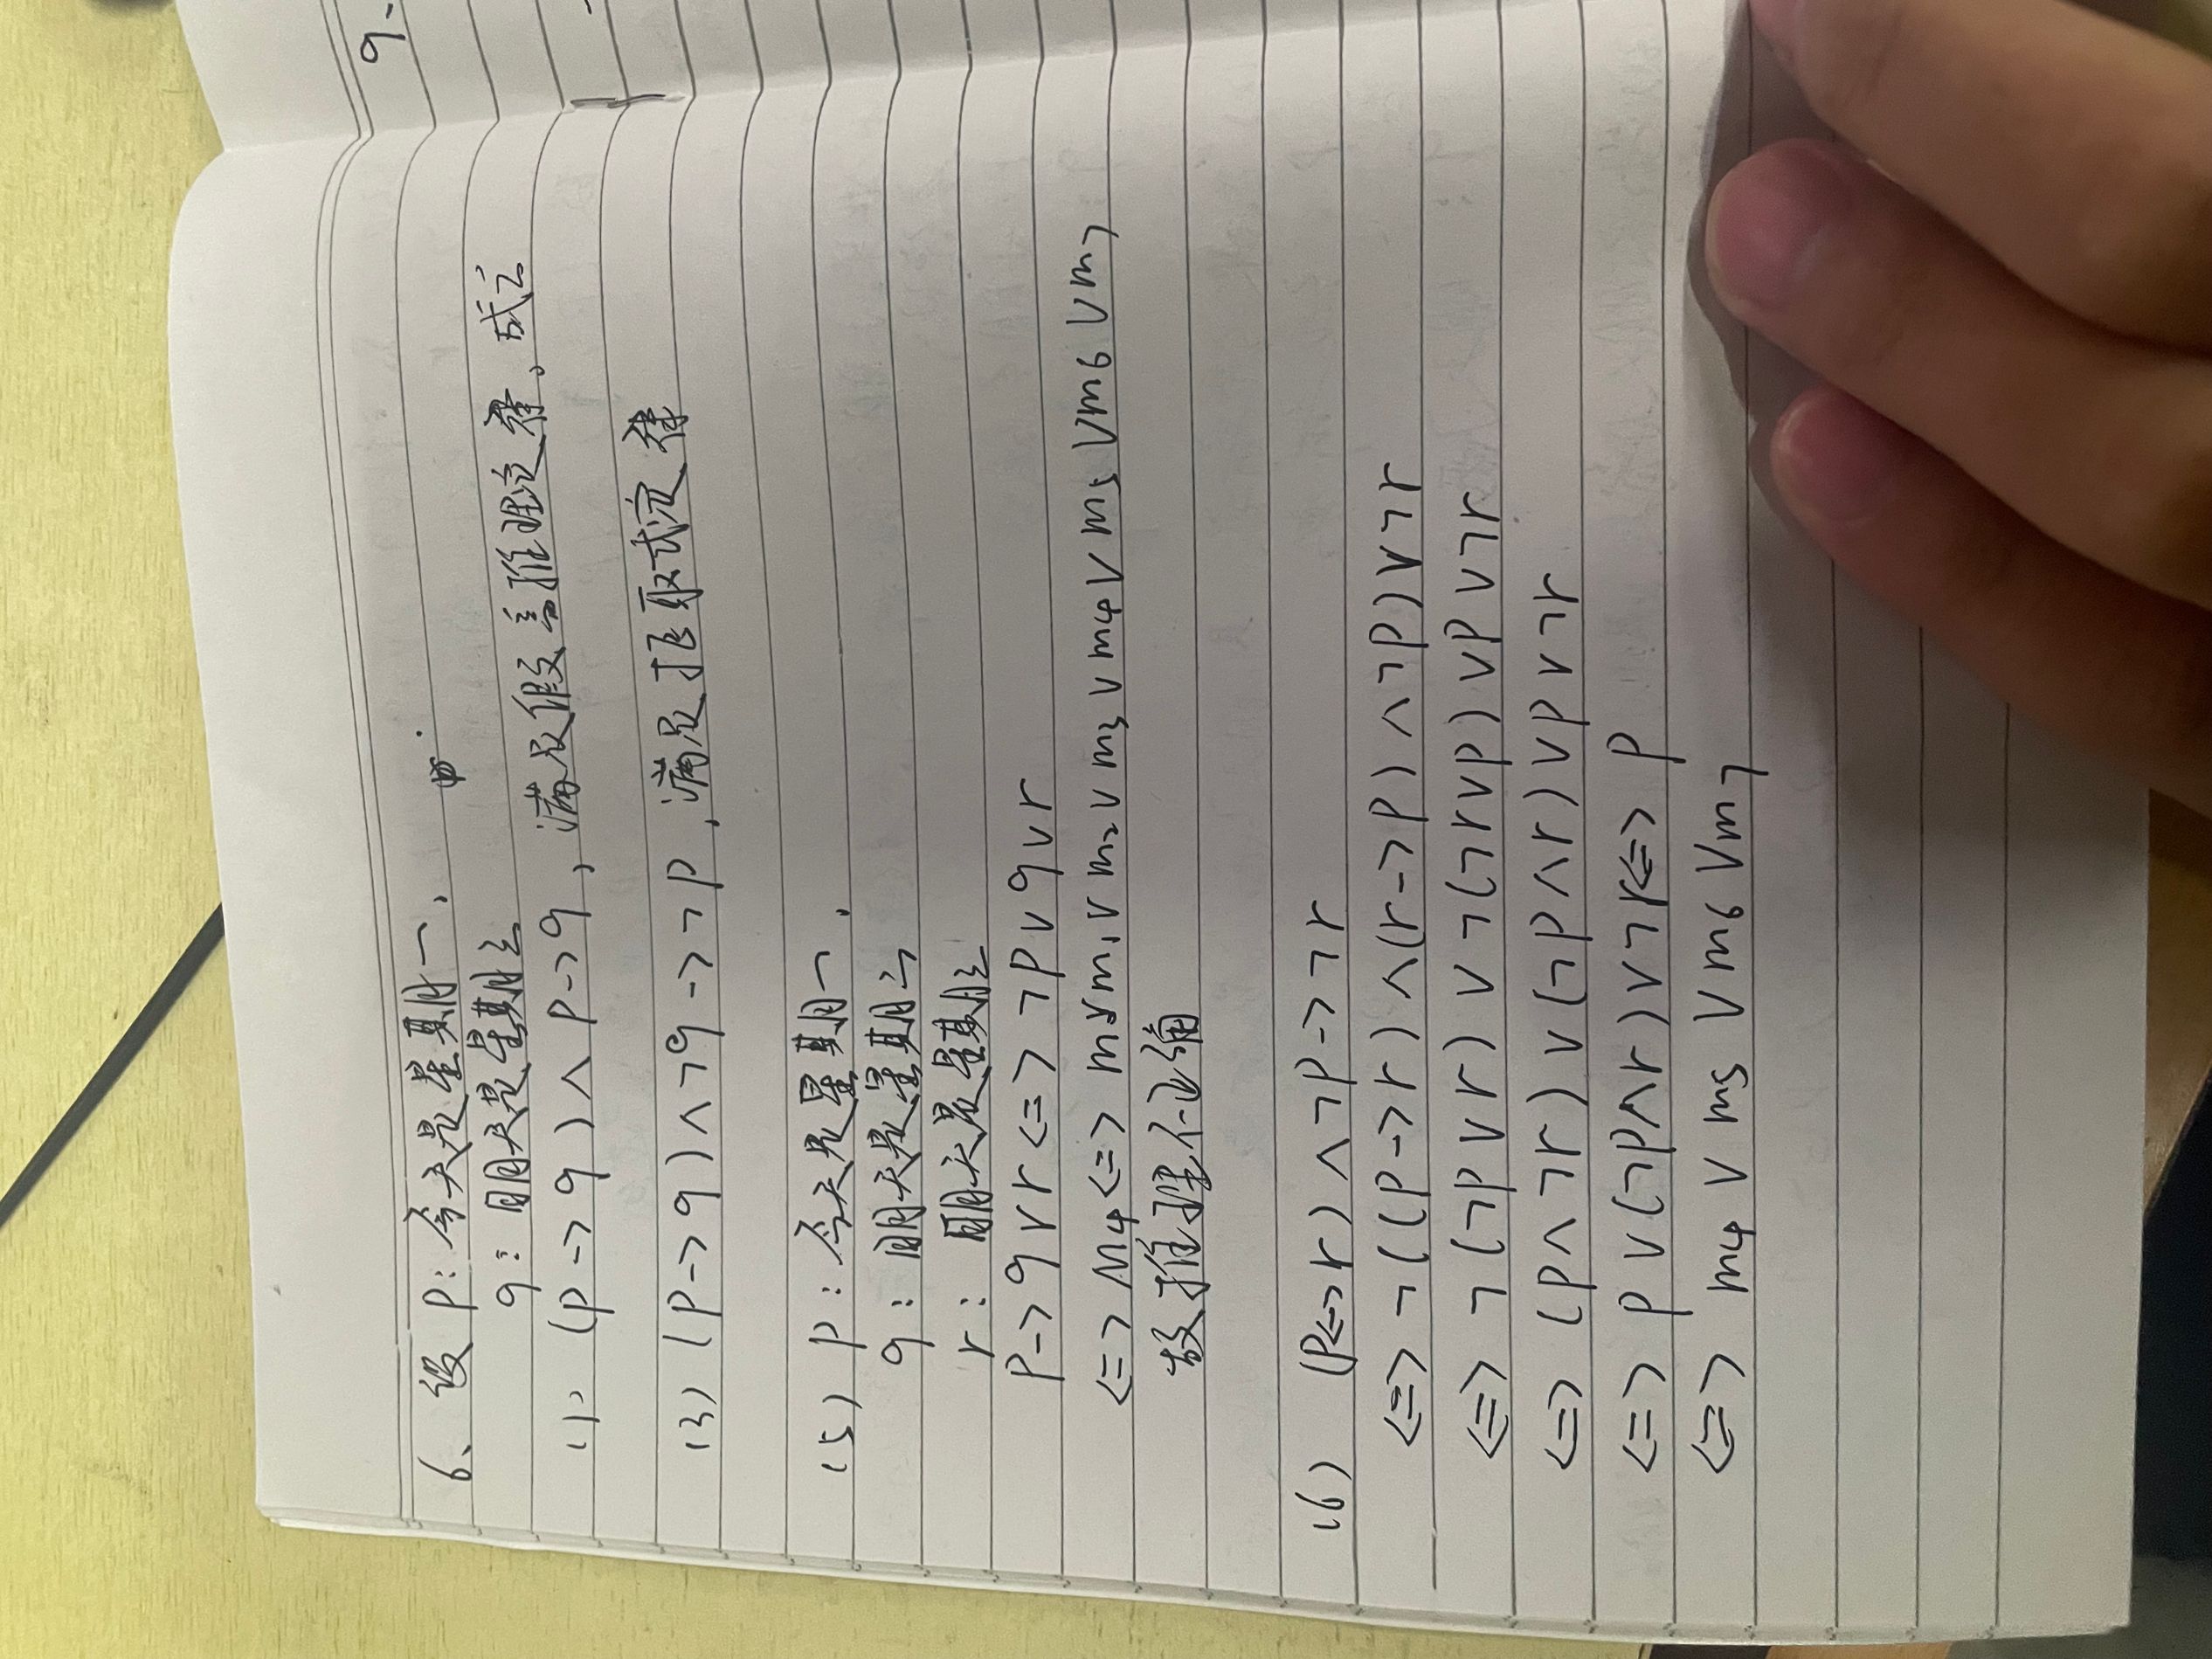 6、设 p:今天是星期一,
q:明天是星期三
(1) (p->q)∧p->q,满足假言推理定律。成立
(3) (p->q)∧¬q->¬p,满足拒取式定律
(5) p:今天是星期一,
q:明天是星期二
r:明天是星期三
p->q∨r<=>¬p∨q∨r
<=>M4<=> m∨m1∨m2∨m3∨m4∨m5∨m6∨m7
故推理不正确
(6) (p<->r)∧¬p->¬r
<=>¬((p->r)∧(r->p)∧¬p)∨¬r
<=>¬(¬p∨r)∨¬(¬r∨p)∨p∨¬r
<=>(p∧¬r)∨(¬p∧r)∨p∨¬r
<=>p∨(¬p∧r)∨¬r<=>p
<=>m4∨m5∨m6∨m7
9、